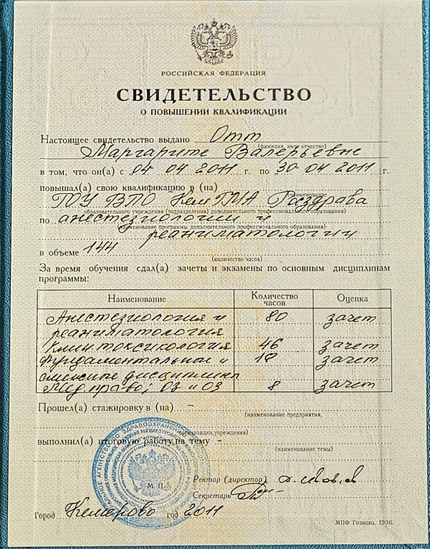 РОССИЙСКАЯ ФЕДЕРАЦИЯ
СВИДЕТЕЛЬСТВО
О ПОВЫШЕНИИ КВАЛИФИКАЦИИ
Настоящее свидетельство выдано Отт
(фамилия, имя, отчество)
Маргарите Валерьевне
в том, что он(а) с 04.04.2011 г. по 30.04.2011 г.
повышал(а) свою квалификацию в (на)
ГОУ ВПО КемГМА Росздрава
образовательного учреждения (подразделения) дополнительного профессионального образования)
по анестезиологии и
программы дополнительного профессионального образования)
реаниматологии
в объеме 144
(количество часов)
За время обучения сдал(а) зачеты и экзамены по основным дисциплинам
программы:
Наименование Количество часов Оценка
Анестезиология и
реаниматология 80 зачет
Клин. токсикология 46 зачет
Фундаментальные и 10 зачет
смежные дисциплины
Мед. право; ОЗ и ОЗ 8 зачет
Прошел(а) стажировку в (на) -
(наименование предприятия,
организации, учреждения)
выполнил(а) итоговую работу на тему -
(наименование темы)
М.П.
Ректор (директор)
Секретарь
Город Кемерово год 2011
МПФ Гознака. 1996.